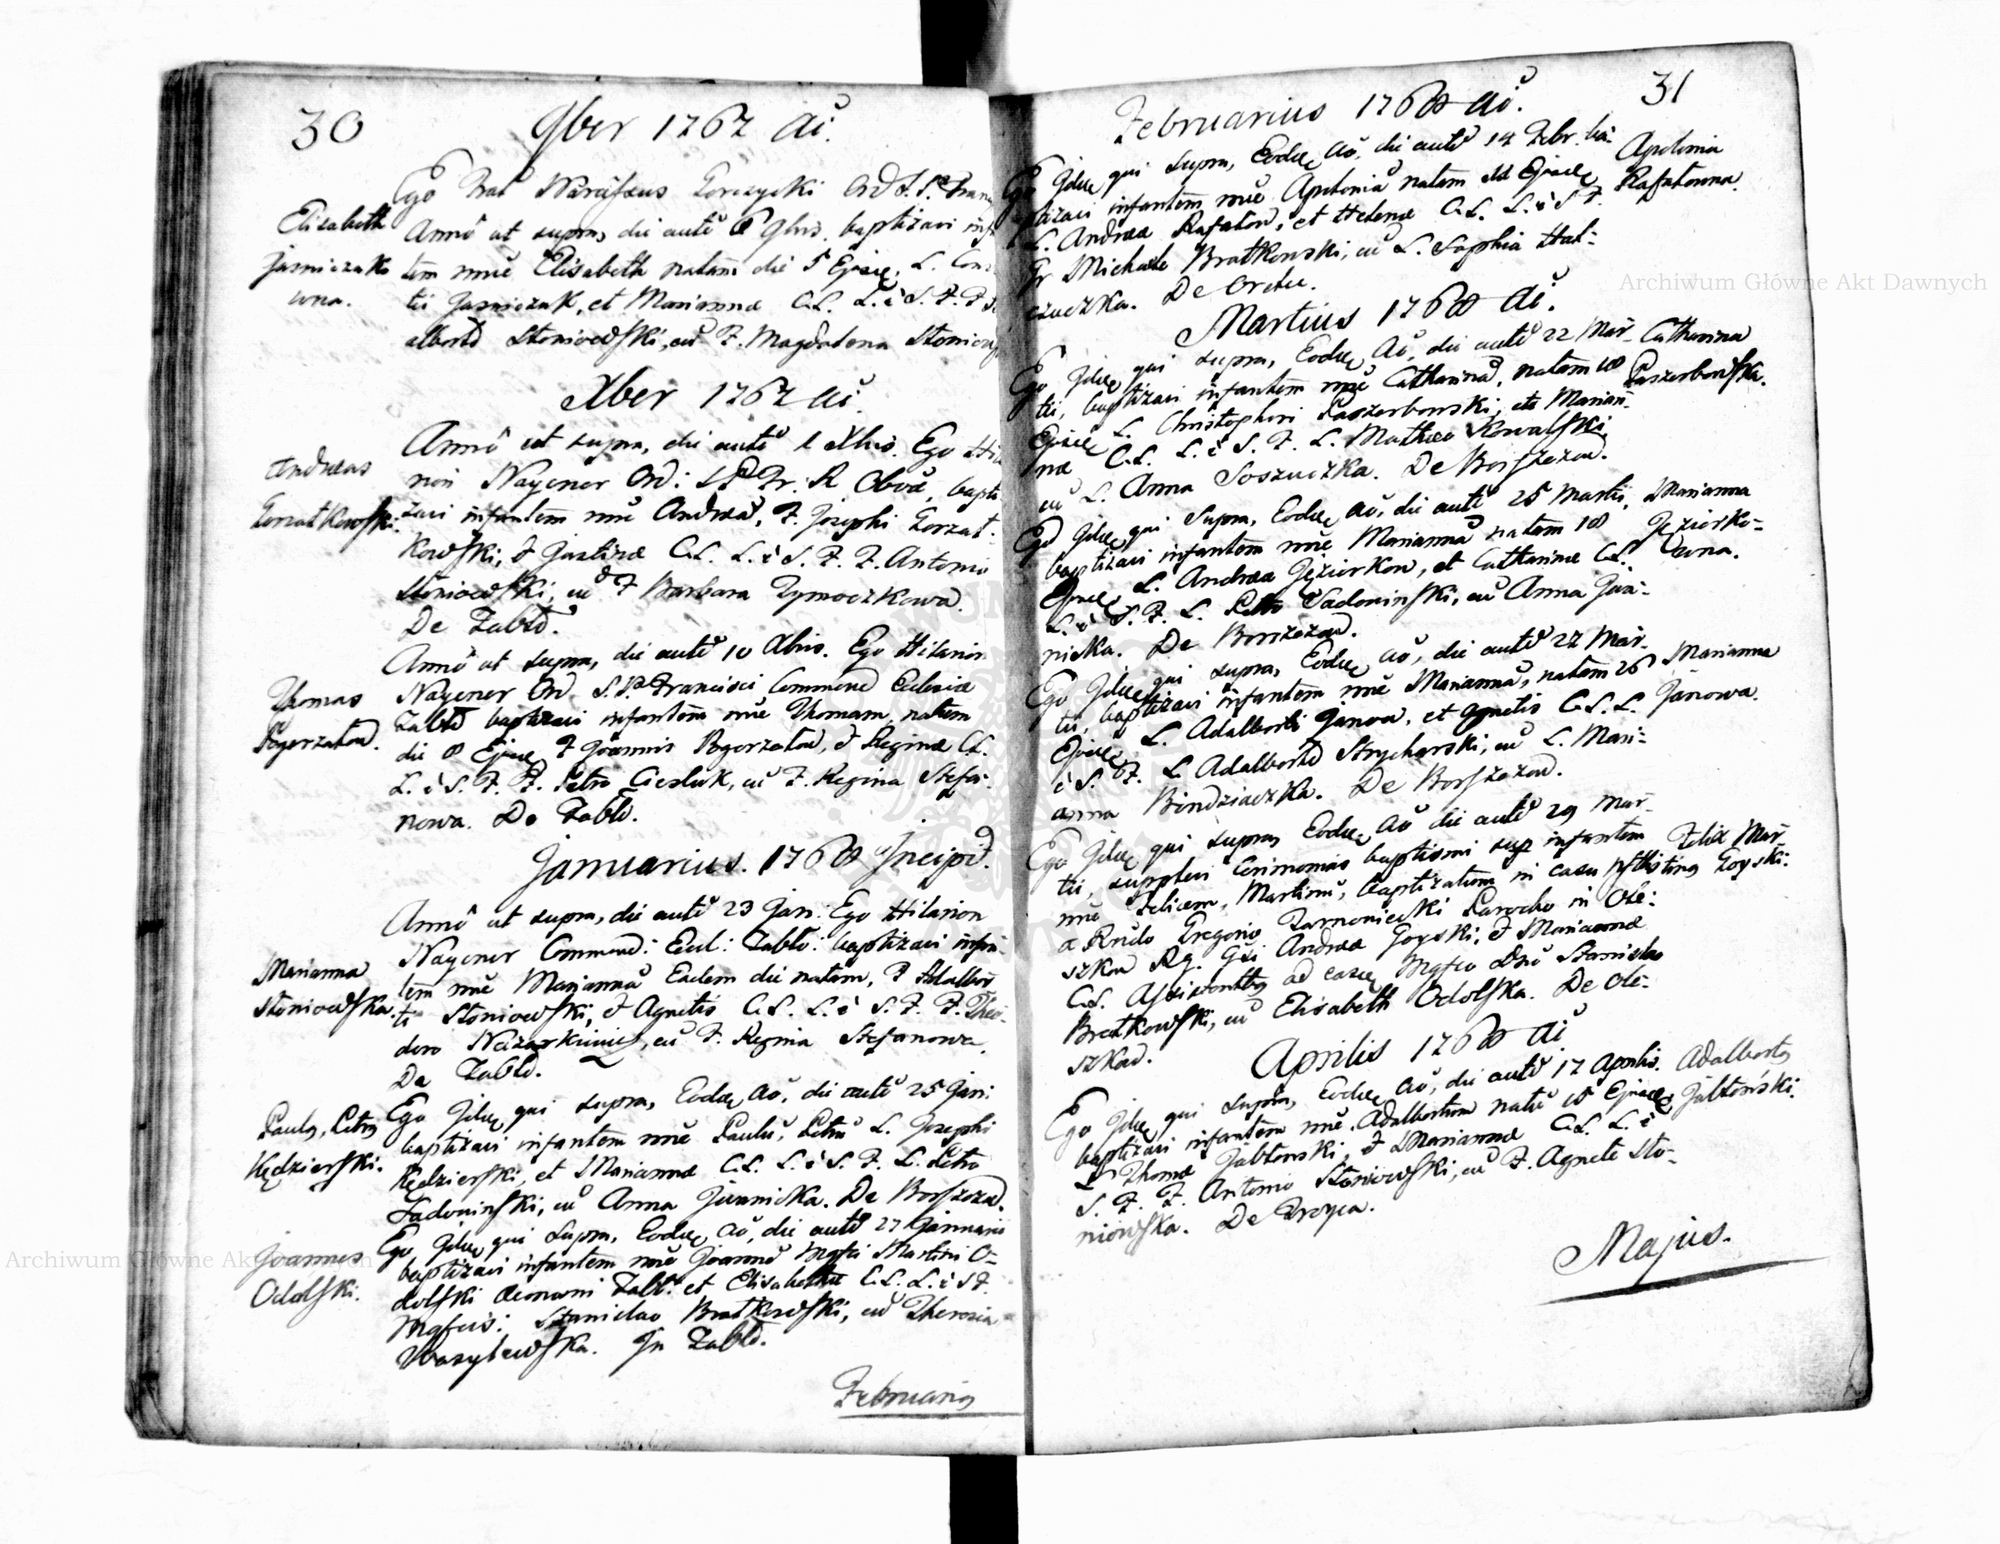 30
9ber 1767 aĩ.
Ego Narcissus Gorczycki Ord S. P. Fran
Elisabeth
Jasniczako
wna.
Annô ut supra, die autẽ 6 9bris. baptizavi inf
tem nñe Elisabeth natam die 5 Ejusẽ, L. Con
tii Jasniczak, et Mariannæ C.L. L. è S. F. F
alberto Słoniowski, cũ F. Magdalena Słoniows
Xber 1767 aĩ.
Andreas
Gorzatkowski.
Annô ut supra, die autẽ 1 Xbris. Ego Hila
rion Nagener Ord: S.P. Fr: R Obvã, bapti
zavi infantem nñe Andreã, F. Josephi Gorzat-
kowski, & Justinæ C.L. L. è S. F. F. Antonio
Słoniowski, cũ F Barbara Tymoczkowa.
De Zabłõ.
Thomas
Pogorzałow.
Annô ut supra, die autẽ 10 Xbris. Ego Hilarion
Nagener Ord. S. P. Francisci Commend Eclesiæ
Zabłõ baptizavi infantem nñe Thomam, natum
die 8 Ejusẽ F Joannis Pogorzałow, & Reginæ C.L.
L. è S. F. F. Petro Ciesluk, cũ F. Regina Stefa-
nowa. De Zabłõ.
Januarius. 1768 Incipit.
Marianna
Słoniowska.
Annô ut supra, die autẽ 23 Jan: Ego Hilarion
Nagener Commend: Eccl: Zabło: baptizavi infan-
tem nñe Mariannã Eadem die natam, F Adalber
ti Słoniowski, & Agnetis C.L. L. è S. F. F. Theo-
doro Nazarkiewicz, cũ F. Regina Stefanowa.
De Zabłõ.
Paulg, Petrg
Kędzierski.
Ego Idẽ qui supra, Eodẽ aõ, die autẽ 25 Jan:
baptizavi infantem nñe Paulũ, Petrũ L. Josephi
Kędzierski, et Mariannæ C.L. L. è S. F. L. Petro
Sadowinski, cũ Anna Juranicka. De Borszczow.
Joannes
Odolski.
Ego Idẽ qui supra, Eodẽ aõ, die autẽ 27 Januarii
baptizavi infantem nñe Joannẽ Mgfci Martini O-
dolski œconomi Zabł: et Elisabethæ C.L. L. è S F.
Mgfcus: Stanislao Bratkowski, cũ Theresia
Wasylewska. In Zabłõ.
Februarig
31
Februarius 1768 aĩ.
Apolonia
Rafałowna.
Ego Idẽ qui supra, Eodẽ aõ, die autẽ 14 Febr. ba-
ptizavi infantem nñe Apoloniã natam 11 Ejusẽ
L. Andreæ Rafałow, et Helenæ C.L. L. è S F.
Gr Michaele Bratkowski, cũ L. Sophia Hal-
czuczka. De Ordu.
Martius 1768 aĩ.
Catharina
Paszerbowska.
Ego Idẽ qui supra, Eodẽ Aõ, die autẽ 22 Mar-
tii, baptizavi infantem nñe Catharinã, natam 18
Ejusẽ L. Christophori Paszerbowski, et Marian-
næ C.L. L. è S. F. L. Matheo Kowalski,
cũ L. Anna Soszuczka. De Borszczow.
Marianna
Jęziorko-
wna.
Ego Idẽ qui supra, Eodẽ aõ, die autẽ 25 Martii,
baptizavi infantem nñe Mariannã natam 18
Ejusẽ L. Andreæ Jęziorkow, et Catharinæ C.L.
L. è S. F. L. Petro Sadowinski, cũ Anna Jura-
nicka. De Borszczow.
Marianna
Janowa.
Ego Idẽ qui supra, Eodẽ aõ, die autẽ 27 Mar-
tii, baptizavi infantem nñe Mariannã, natam 26
Ejusẽ L. Adalberti Janow, et Agnetis C.L. L.
è S. F. L Adalberto Strycharski, cũ L. Mari-
anna Bindziaczka. De Borszczow.
Felix Mar
ting Goyski.
Ego Idẽ qui supra, Eodẽ Aõ die autẽ 29 Mar-
tii, supplevi Cerimonias baptismi sup infantem
nñe Felicem, Martinũ, baptizatum in casu nŸttis
a Rndo Gregorio Zarnowiecki Parocho in Ole-
szkow Rg. Gsi Andreæ Goyski, & Mariannæ
C.L. Assistentbg ad casũ Mgfco Dnõ Stanislao
Bratkowski, cũ Elisabeth Odolska. De Ole-
szkow.
Aprilis 1768 aĩ
Adalbertg
Jabłoński.
Ego Idẽ qui supra, Eodẽ aõ, die autẽ 17 Aprilis.
baptizavi infantem nñe Adalbertum natũ 15 Ejusẽ
L Thomæ Jabłonski, & Mariannæ C.L. L. è
S. F. F. Antonio Słoniowski, cũ F. Agnete Sło-
niowska. De Troyca.
Majus.
Archiwum Główne Akt Dawnych
Archiwum Główne Akt Dawnych